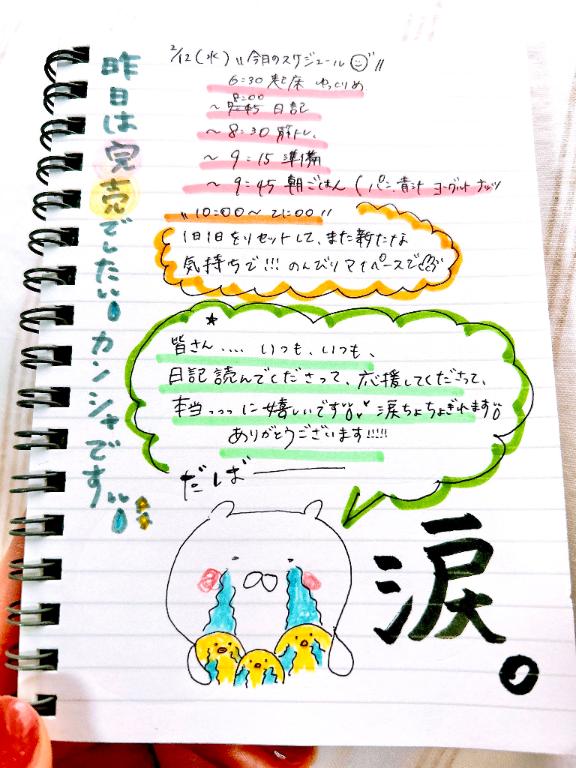 2/12(水) 〝今日のスケジュール〟
6:30 起床 ゆっくりめ
8:00
~ 7:45 日記
~ 8:30 筋トレ、
~ 9:15 準備
~ 9:45 朝ごはん (パン、青汁 ヨーグルト ナッツ
〝10:00~21:00〟
1日1日をリセットして、また新たな
気持ちで!!! のんびりマイペースで
昨日は完売でしたい カンシャです
皆さん.... いつも、いつも、
日記読んでくださって、応援してくださって、
本当っっっに嬉しいです 涙ちょちょぎれます
ありがとうございます!!!!!
だば――
涙。